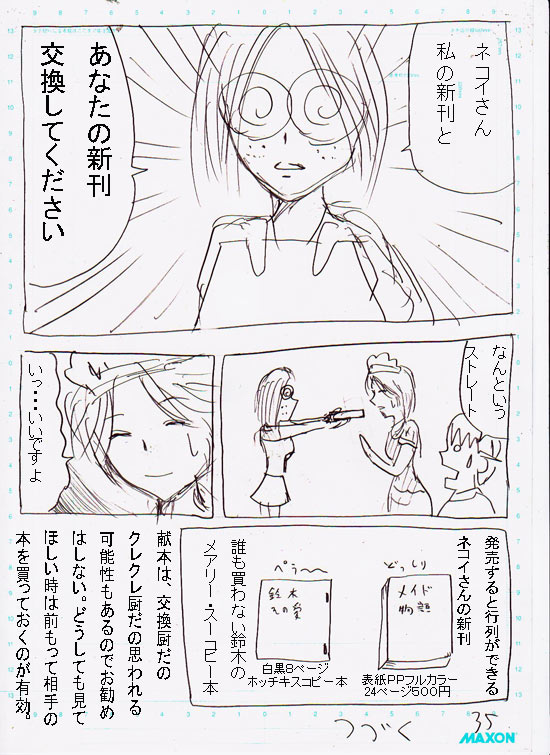 ネコイさん
私の新刊と
あなたの新刊
交換してください
なんという
ストレート
いっ・・・いいですよ
発売すると行列ができる
ネコイさんの新刊
どっしり
メイド
物語
表紙PPフルカラー
24ページ500円
ペラ〜〜
鈴木
白黒8ページ
ホッチキスコピー本
誰も買わない鈴木の
メアリー・スーコピー本
献本は、交換厨だの
クレクレ厨だの思われる
可能性もあるのでお勧め
はしない。どうしても見て
ほしい時は前もって相手の
本を買っておくのが有効。
つづく
35
MAXON